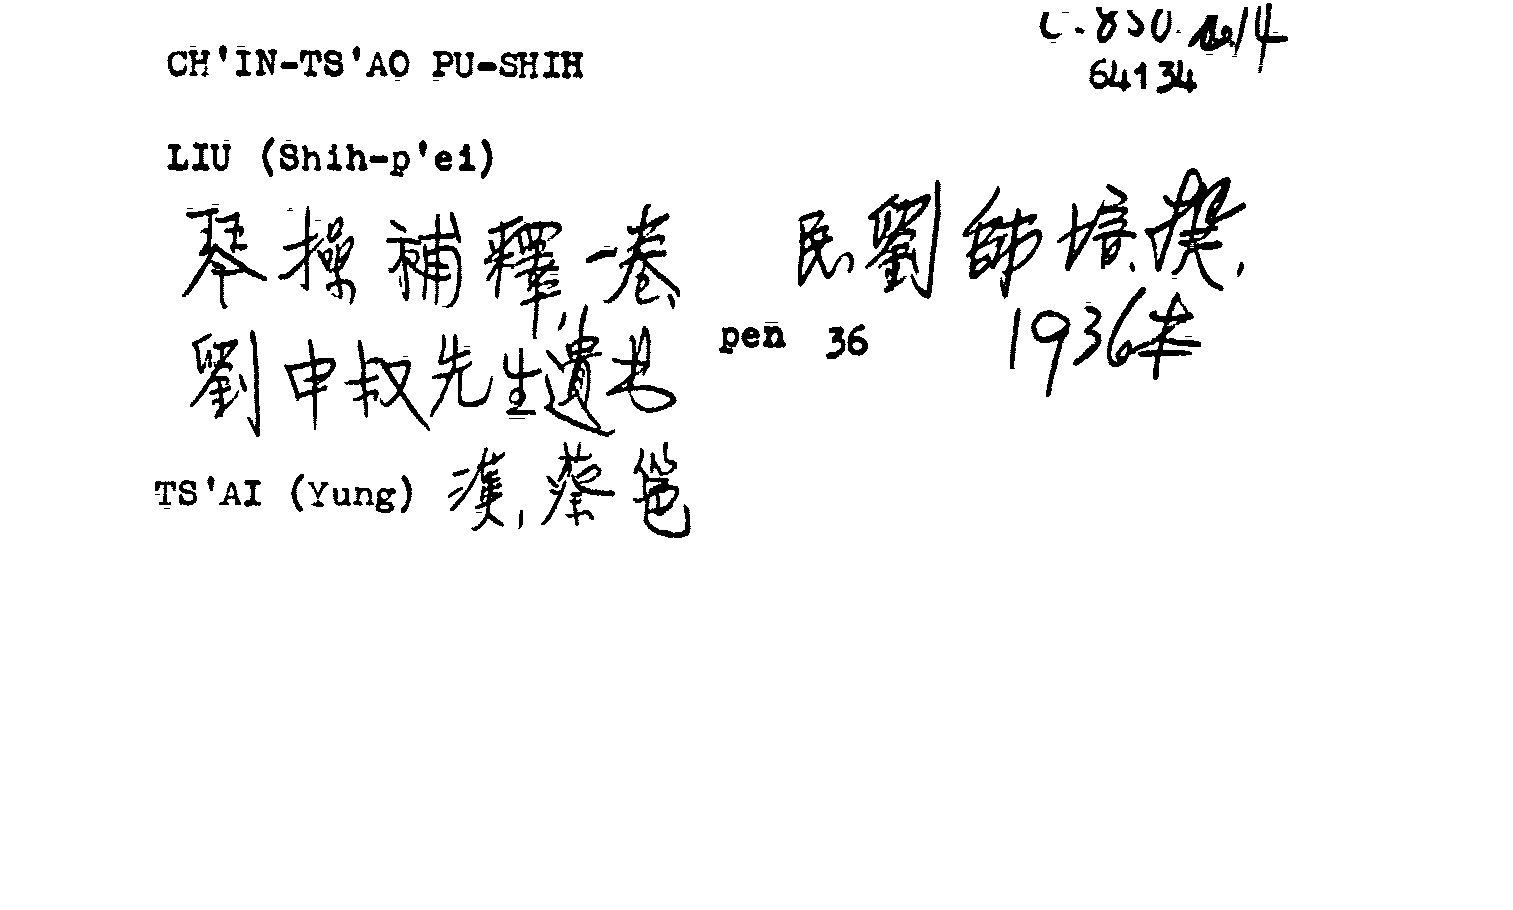 C.850.
64134
CH'IN-TS'AO PU-SHIH
LIU (Shih-p'ei)
琴操補釋一卷 民劉師培撰,
劉申叔先生遺书 pen 36 1936本
TS'AI (Yung) 漢,蔡邕